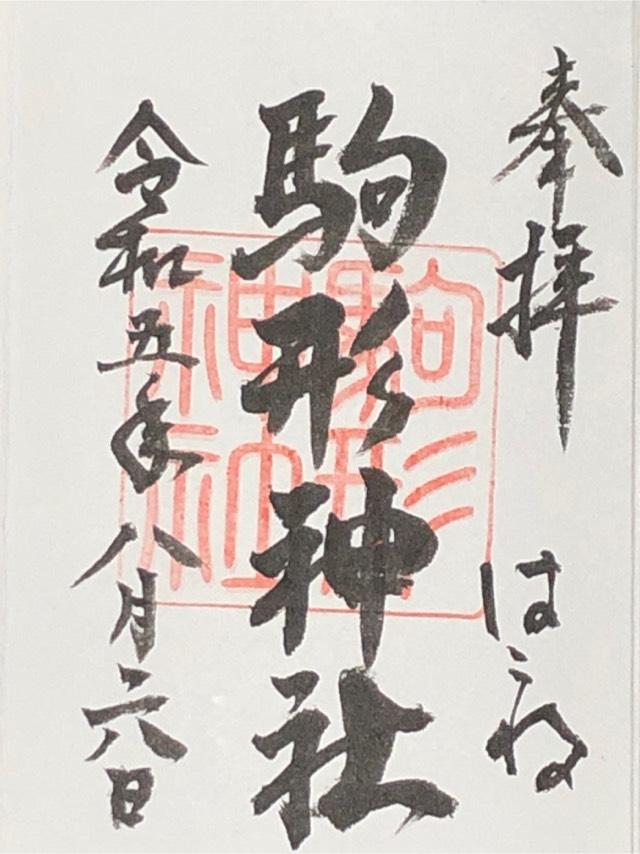 奉拝
はこね
駒形神社
駒形
神社
令和五年八月六日